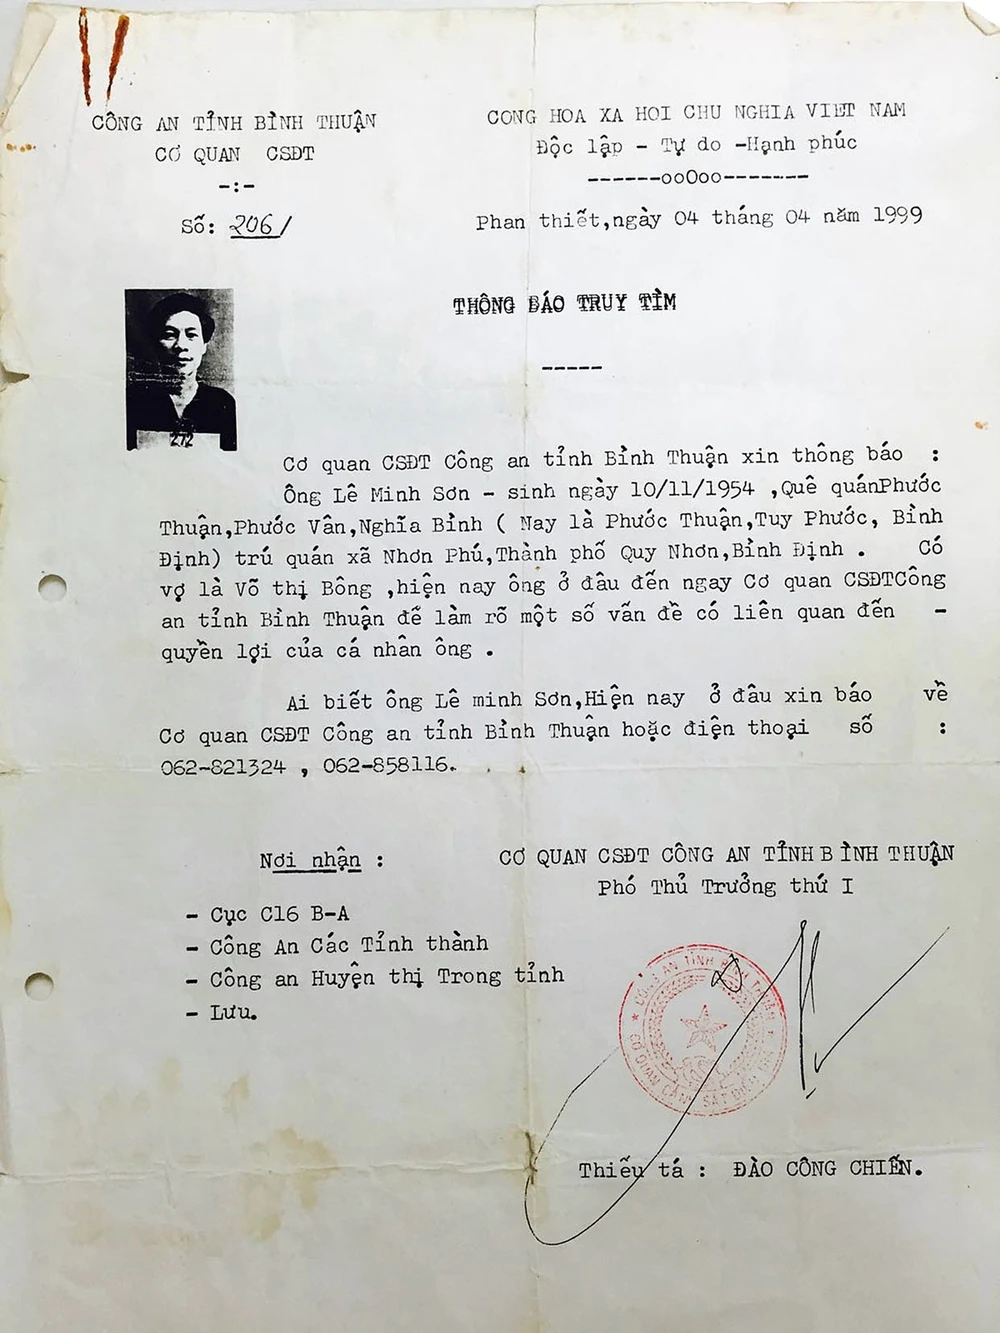 CÔNG AN TỈNH BÌNH THUẬN
CƠ QUAN CSĐT
-:-
Số: 206/
CONG HOA XA HOI CHU NGHIA VIET NAM
Độc lập - Tự do -Hạnh phúc
------ooOoo-------
Phan thiết,ngày 04 tháng 04 năm 1999
THÔNG BÁO TRUY TÌM
-----
272
Cơ quan CSĐT Công an tỉnh Bình Thuận xin thông báo :
Ông Lê Minh Sơn - sinh ngày 10/11/1954 ,Quê quánPhước
Thuận,Phước Vân,Nghĩa Bình ( Nay là Phước Thuận,Tuy Phước, Bình
Định) trú quán xã Nhơn Phú,Thành phố Quy Nhơn,Bình Định . Có
vợ là Võ thị Bông ,hiện nay ông ở đâu đến ngay Cơ quan CSĐTCông
an tỉnh Bình Thuận để làm rõ một số vấn đề có liên quan đến -
quyền lợi của cá nhân ông .
Ai biết ông Lê minh Sơn,Hiện nay ở đâu xin báo về
Cơ quan CSĐT Công an tỉnh Bình Thuận hoặc điện thoại số :
062-821324 , 062-858116.
Nơi nhận :
- Cục C16 B-A
- Công An Các Tỉnh thành
- Công an Huyện thị Trong tỉnh
- Lưu.
CƠ QUAN CSĐT CÔNG AN TỈNH BÌNH THUẬN
Phó Thủ Trưởng thứ I
CÔNG AN TỈNH BÌNH THUẬN
CƠ QUAN CẢNH SÁT ĐIỀU TRA
Thiếu tá : ĐÀO CÔNG CHIẾN.